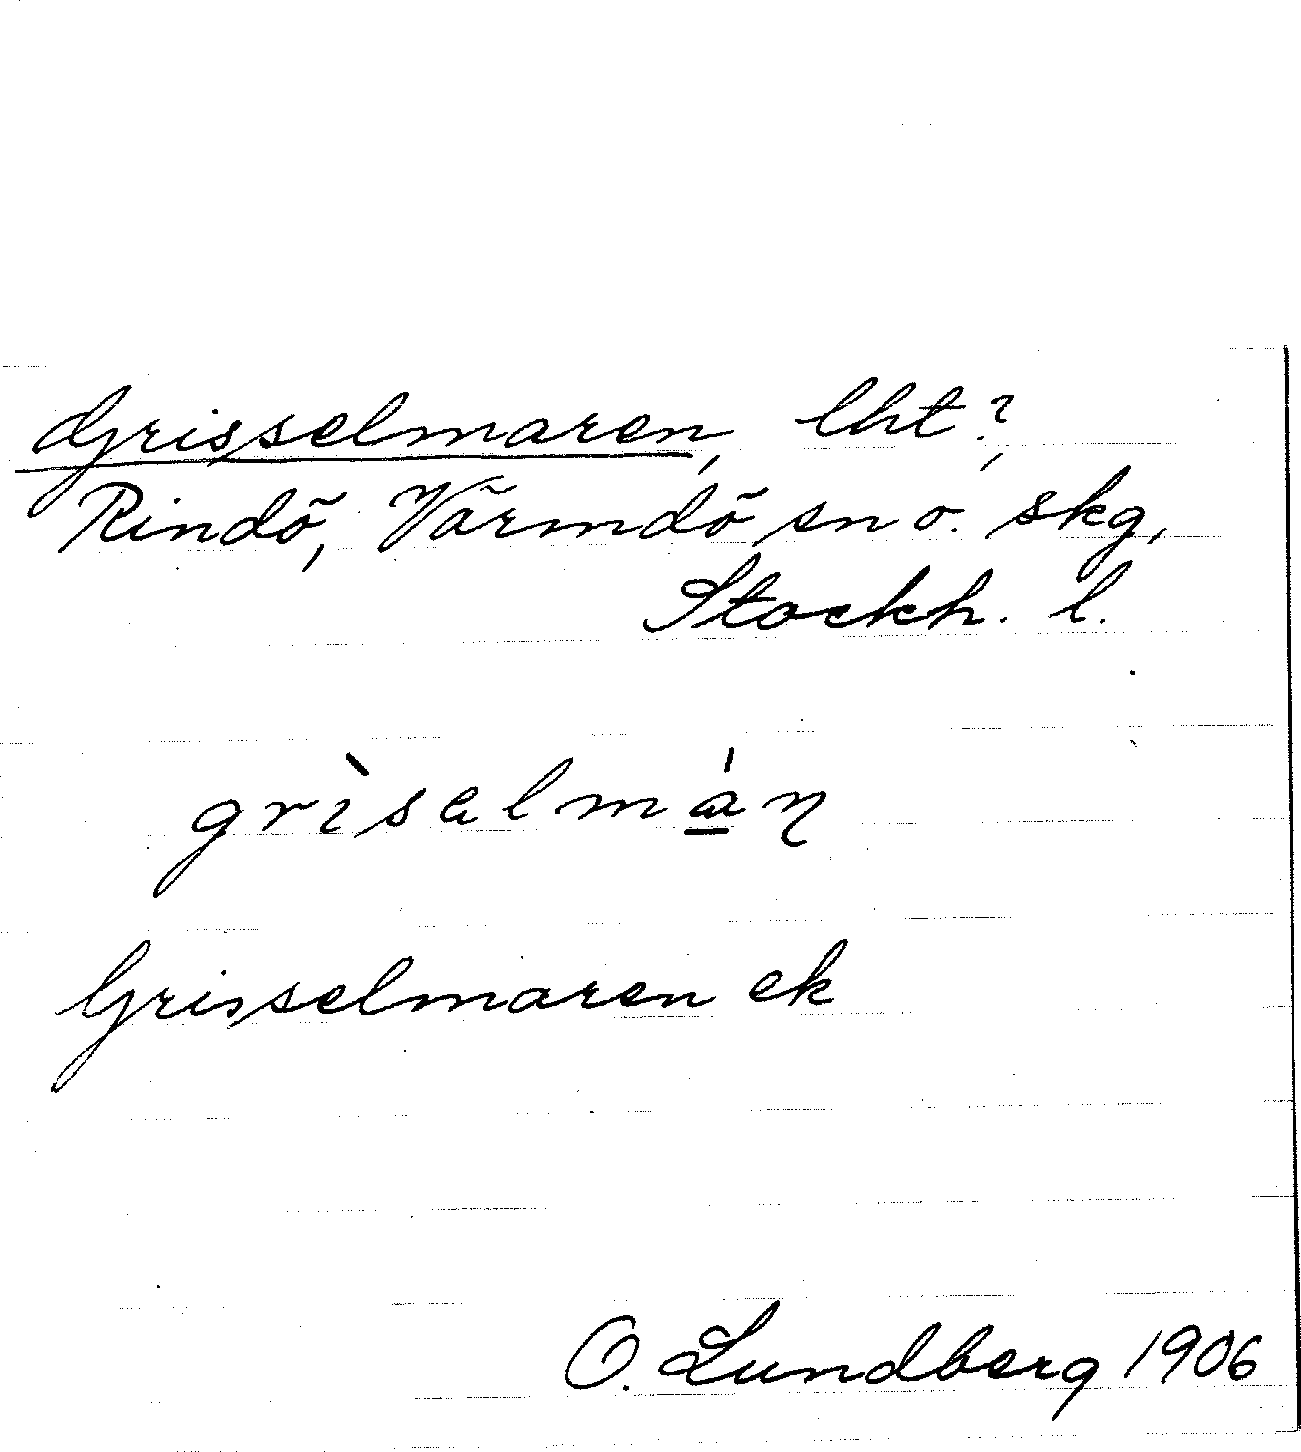 Grisselmaren, lht?,
Rindö, Värmdö sn o. skg,
Stockh. l.
grìsalmán
Grisselmaren ek
O. Lundberg 1906